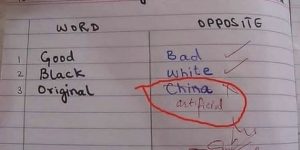 WORD OPPOSITE
1 Good Bad
2 Black white
3 Original China
artificial